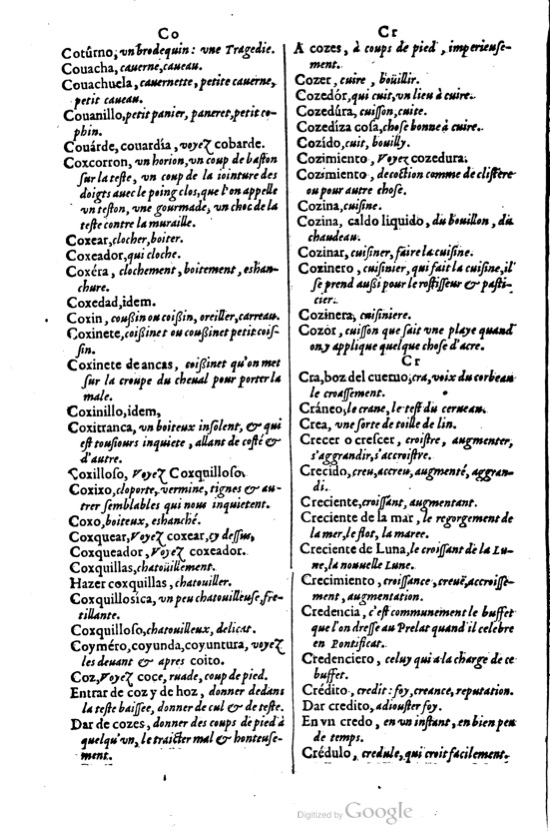 Co
Cotûrno, vn brodequin: vne Tragedie.
Couacha, cauerne, caueau.
Couachuela, cauernette, petite cauerne,
petit caueau.
Couanillo, petit panier, paneret, petit co-
phin.
Couárde, couardía, voyeʒ cobarde.
Coxcorron, vn horion, vn coup de baſton
ſur la teſte, vn coup de la iointure des
doigts auec le poing clos, que l'on appelle
vn teſton, vne gourmade, vn choc de la
teſte contre la muraille.
Coxear, clocher, boiter.
Coxeador, qui cloche.
Coxéra, clochement, boitement, eshan-
chure.
Coxedad, idem.
Coxin, couſſin ou coißin, oreiller, carreau.
Coxinete, coißinet ou couſſinet petit coiſ-
ſin.
Coxinete de ancas, coißinet qu'on met
ſur la croupe du cheual pour porter la
male.
Coxinillo, idem,
Coxitranca, vn boiteux inſolent, & qui
eſt touſiours inquiete, allant de coſté &
d'autre.
Coxilloſo, Voyeʒ Coxquilloſo.
Coxixo, cloporte, vermine, tignes & au-
trer ſemblables qui nous inquietent.
Coxo, boiteux, eshanché.
Coxquear, Voyeʒ coxear, cy deſſus,
Coxqueador, Voyeʒ coxeador.
Coxquillas, chatoüillement.
Hazer coxquillas, chatouiller.
Coxquillosíca, vn peu chatouilleuſe, fre-
tillante.
Coxquilloſo, chatouilleux, delicat.
Coyméro, coyunda, coyuntura, voyeʒ
les deuant & apres coito.
Coz, Voyeʒ coce, ruade, coup de pied.
Entrar de coz y de hoz, donner dedans
la teſte baiſſee, donner de cul & de teſte.
Dar de cozes, donner des coups de pied à
quelqu'vn, le traicter mal & honteuſe-
ment.
Cr
A cozes, à coups de pied, imperieuſe-
ment.
Cozer, cuire, boüillir.
Cozedór, qui cuit, vn lieu à cuire.
Cozedúra, cuiſſon, cuite.
Cozediza coſa, choſe bonne à cuire.
Cozído, cuit, bouilly.
Cozimiento, Voyeʒ cozedura.
Cozimiento, decoction comme de cliſtere
ou pour autre choſe.
Cozina, cuiſine.
Cozina, caldo liquido, du bouillon, du
chaudeau.
Cozinar, cuiſiner, faire la cuiſine.
Cozinero, cuiſinier, qui fait la cuiſine, il
ſe prend außi pour le roſtiſſeur & paſti-
cier.
Cozinera, cuiſiniere.
Cozór, cuiſſon que fait vne playe quand
on y applique quelque choſe d'acre.
Cr
Cra, boz del cueruo, cra, voix du corbeau
le croaſſement.
Cráneo, le crane, le teſt du cerueau.
Crea, vne ſorte de toille de lin.
Crecer o creſcer, croiſtre, augmenter,
s'aggrandir, s'accroiſtre.
Crecido, creu, accreu, augmenté, aggran-
di.
Creciente, croiſſant, augmentant.
Creciente de la mar, le regorgement de
la mer, le flot, la maree.
Creciente de Luna, le croiſſant de la Lu-
ne, la nouuelle Lune.
Crecimiento, croiſſance, creuë, accroiſſe-
ment, augmentation.
Credencia, c'eſt communement le buffet
que l'on dreſſe au Prelat quand il celebre
en Pontificat.
Credenciero, celuy qui a la charge de ce
buffet.
Crédito, credit: foy, creance, reputation.
Dar credito, adiouſter foy.
En vn credo, en vn inſtant, en bien peu
de temps.
Crédulo, credule, qui croit facilement.
Digitized by Google